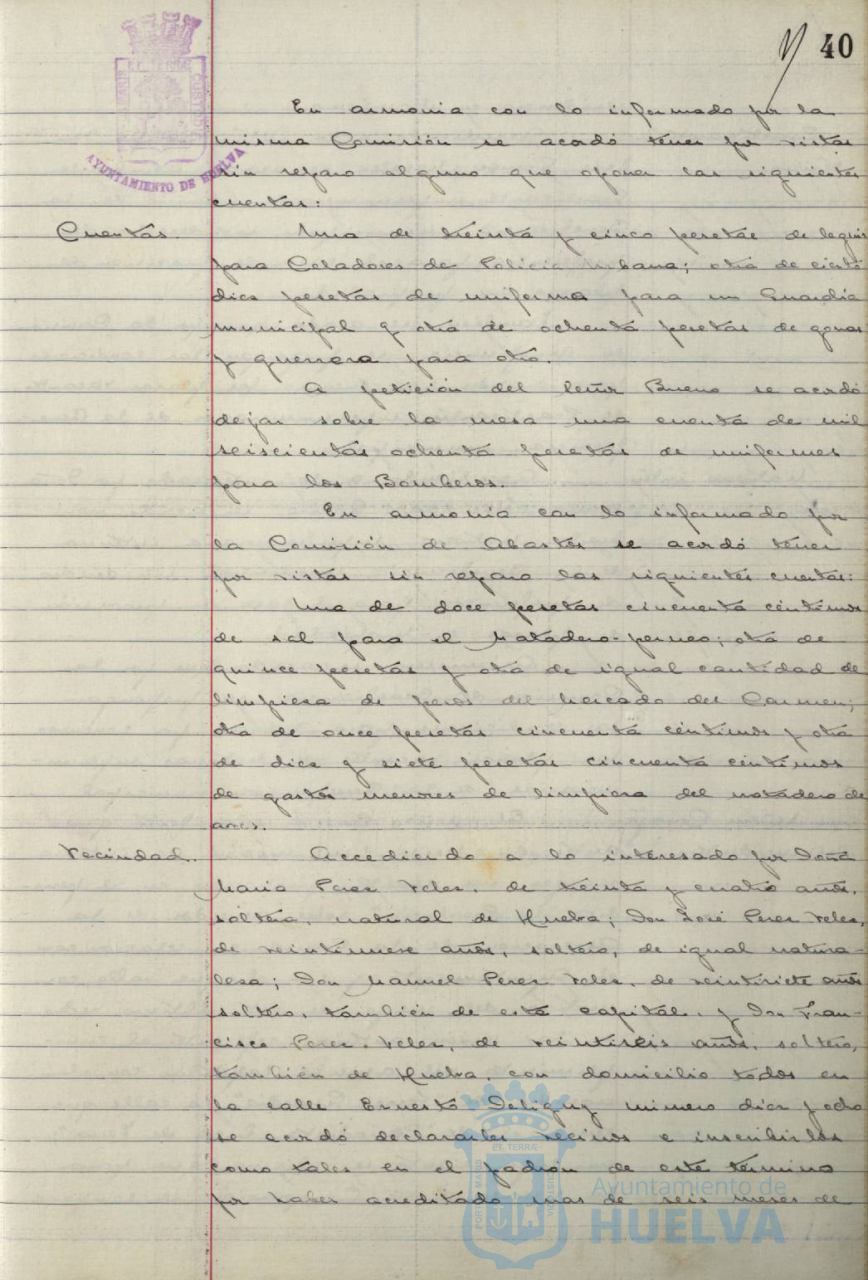 40
EL TERRÆ
AYUNTAMIENTO DE HUELVA
En armonia con lo informado por la
misma Comisión se acordó tener por vistas
sin reparo alguno que oponer las siguientes
cuentas:
Cuentas. Una de treinta y cinco pesetas de leguis
para Celadores de Policia Urbana; otra de ciento
diez pesetas de uniforme para un Guardia
municipal y otra de ochenta pesetas de gorras
y guerrera para otro.
A petición del Señor Bueno se acordó
dejar sobre la mesa una cuenta de mil
seiscientas ochenta pesetas de uniformes
para los Bomberos.
En armonia con lo informado por
la Comisión de Abastos se acordó tener
por vistas sin reparo las siguientes cuentas:
Una de doce pesetas cincuenta centimos
de sal para el Matadero-porcuno; otra de
quince pesetas y otra de igual cantidad de
limpiesa de pesos del Mercado del Carmen;
otra de once pesetas cincuenta centimos y otra
de diez y siete pesetas cincuenta centimos
de gastos menores de limpiesa del matadero de
aves.
Vecindad. Accediendo a lo interesado por Doña
Maria Perez Velez, de treinta y cuatro años,
soltera, natural de Huelva; Don José Perez Velez,
de veintinueve años, soltero, de igual natura-
lesa; Don Manuel Perez Velez, de veintisiete años
soltero, también de esta capital, y Don Fran-
cisco Perez Velez, de veintiseis años, soltero,
también de Huelva, con domicilio todos en
la calle Ernesto Deligny número diez y ocho
se acordó declararles vecinos e inscribirlos
como tales en el padrón de este término
por haber acreditado mas de seis meses de
Ayuntamiento de
HUELVA